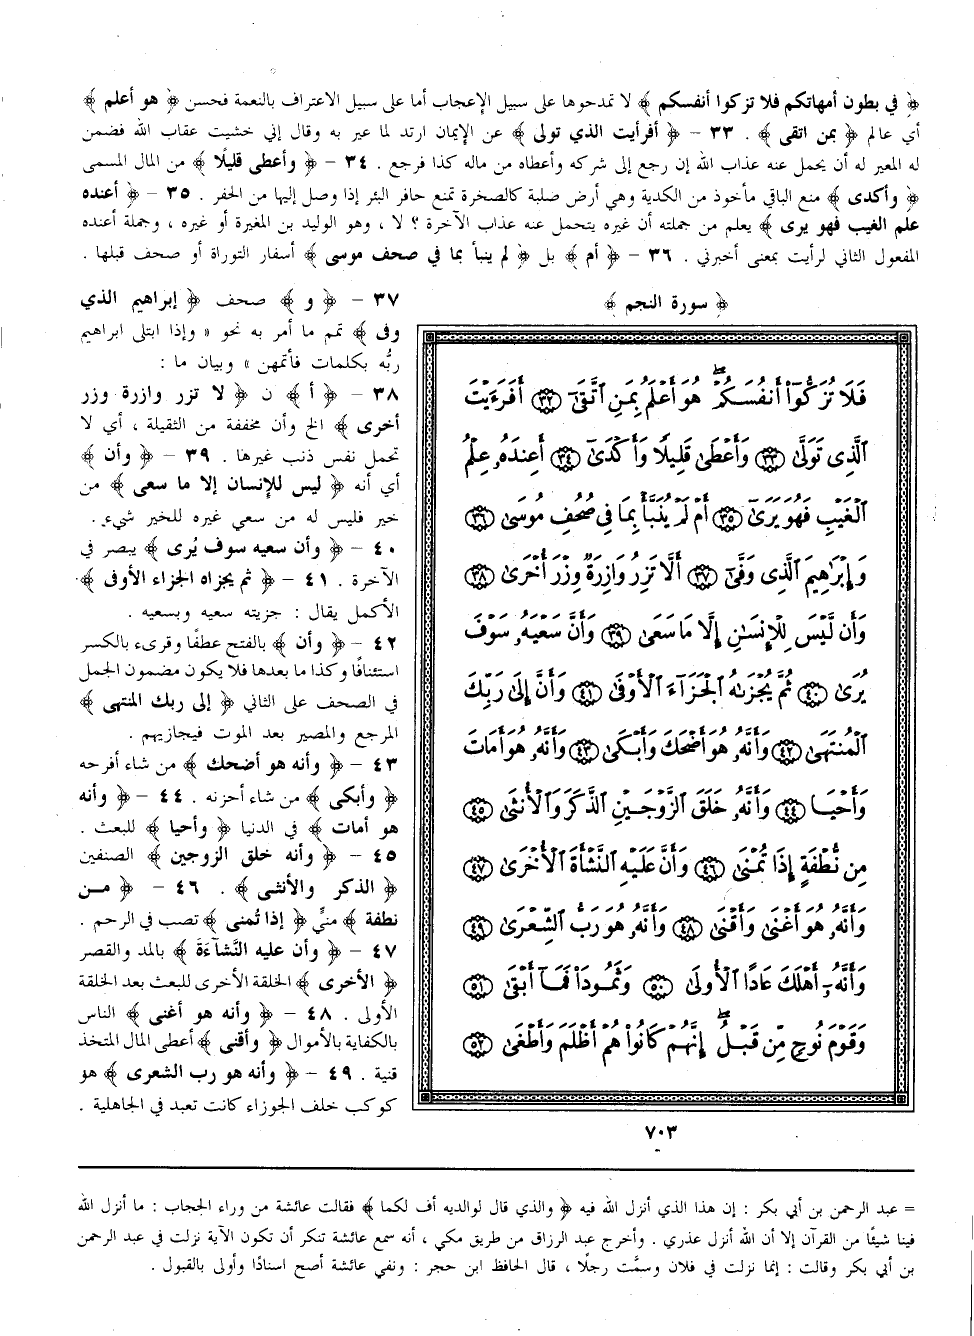 ﴿ في بطون أمهاتكم فلا تزكوا أنفسكم ﴾ لا تمدحوها على سبيل الإعجاب أما على سبيل الاعتراف بالنعمة فحسن ﴿ هو أعلم ﴾
أي عالم ﴿ بمن اتقى ﴾ . ٣٣ - ﴿ أفرأيت الذي تولى ﴾ عن الإيمان ارتد لما عير به وقال إني خشيت عقاب الله فضمن
له المعير له أن يحمل عنه عذاب الله إن رجع إلى شركه وأعطاه من ماله كذا فرجع . ٣٤ - ﴿ وأعطى قليلًا ﴾ من المال المسمى
﴿ وأكدى ﴾ منع الباقي مأخوذ من الكدية وهي أرض صلبة كالصخرة تمنع حافر البئر إذا وصل إليها من الحفر . ٣٥ - ﴿ أعنده
علم الغيب فهو يرى ﴾ يعلم من جملته أن غيره يتحمل عنه عذاب الآخرة ؟ لا ، وهو الوليد بن المغيرة أو غيره ، وجملة أعنده
المفعول الثاني لرأيت بمعنى أخبرني . ٣٦ - ﴿ أم ﴾ بل ﴿ لم ينبأ بما في صحف موسى ﴾ أسفار التوراة أو صحف قبلها .
﴿ سورة النجم ﴾
فَلَا تُزَكُّوٓا۟ أَنفُسَكُمْ ۖ هُوَ أَعْلَمُ بِمَنِ ٱتَّقَىٰٓ ٣٢ أَفَرَءَيْتَ
ٱلَّذِى تَوَلَّىٰ ٣٣ وَأَعْطَىٰ قَلِيلًا وَأَكْدَىٰٓ ٣٤ أَعِندَهُۥ عِلْمُ
ٱلْغَيْبِ فَهُوَ يَرَىٰٓ ٣٥ أَمْ لَمْ يُنَبَّأْ بِمَا فِى صُحُفِ مُوسَىٰ ٣٦
وَإِبْرَٰهِيمَ ٱلَّذِى وَفَّىٰٓ ٣٧ أَلَّا تَزِرُ وَازِرَةٌ وِزْرَ أُخْرَىٰ ٣٨
وَأَن لَّيْسَ لِلْإِنسَـٰنِ إِلَّا مَا سَعَىٰ ٣٩ وَأَنَّ سَعْيَهُۥ سَوْفَ
يُرَىٰ ٤٠ ثُمَّ يُجْزَىٰهُ ٱلْجَزَآءَ ٱلْأَوْفَىٰ ٤١ وَأَنَّ إِلَىٰ رَبِّكَ
ٱلْمُنتَهَىٰ ٤٢ وَأَنَّهُۥ هُوَ أَضْحَكَ وَأَبْكَىٰ ٤٣ وَأَنَّهُۥ هُوَ أَمَاتَ
وَأَحْيَا ٤٤ وَأَنَّهُۥ خَلَقَ ٱلزَّوْجَيْنِ ٱلذَّكَرَ وَٱلْأُنثَىٰ ٤٥
مِن نُّطْفَةٍ إِذَا تُمْنَىٰ ٤٦ وَأَنَّ عَلَيْهِ ٱلنَّشْأَةَ ٱلْأُخْرَىٰ ٤٧
وَأَنَّهُۥ هُوَ أَغْنَىٰ وَأَقْنَىٰ ٤٨ وَأَنَّهُۥ هُوَ رَبُّ ٱلشِّعْرَىٰ ٤٩
وَأَنَّهُۥٓ أَهْلَكَ عَادًا ٱلْأُولَىٰ ٥٠ وَثَمُودَا۟ فَمَآ أَبْقَىٰ ٥١
وَقَوْمَ نُوحٍ مِّن قَبْلُ ۖ إِنَّهُمْ كَانُوا۟ هُمْ أَظْلَمَ وَأَطْغَىٰ ٥٢
٣٧ - ﴿ و ﴾ صحف ﴿ إبراهيم الذي
وفى ﴾ تمم ما أمر به نحو « وإذا ابتلى ابراهيم
ربُّه بكلمات فأتمهن » وبيان ما :
٣٨ - ﴿ أ ﴾ ن ﴿ لا تزر وازرة وزر
أخرى ﴾ الخ وأن مخففة من الثقيلة ، أي لا
تحمل نفس ذنب غيرها . ٣٩ - ﴿ وأن ﴾
أي أنه ﴿ ليس للإنسان إلا ما سعى ﴾ من
خير فليس له من سعي غيره للخير شيء .
٤٠ - ﴿ وأن سعيه سوف يُرى ﴾ يبصر في
الآخرة . ٤١ - ﴿ ثم يجزاه الجزاء الأوفى ﴾
الأكمل يقال : جزيته سعيه وبسعيه .
٤٢ - ﴿ وأن ﴾ بالفتح عطفًا وقرىء بالكسر
استئنافًا وكذا ما بعدها فلا يكون مضمون الجمل
في الصحف على الثاني ﴿ إلى ربك المنتهى ﴾
المرجع والمصير بعد الموت فيجازيهم .
٤٣ - ﴿ وأنه هو أضحك ﴾ من شاء أفرحه
﴿ وأبكى ﴾ من شاء أحزنه . ٤٤ - ﴿ وأنه
هو أمات ﴾ في الدنيا ﴿ وأحيا ﴾ للبعث .
٤٥ - ﴿ وأنه خلق الزوجين ﴾ الصنفين
﴿ الذكر والأنثى ﴾ . ٤٦ - ﴿ من
نطفة ﴾ منيٍّ ﴿ إذا تُمنى ﴾ تصب في الرحم .
٤٧ - ﴿ وأن عليه النَّشآءَةَ ﴾ بالمد والقصر
﴿ الأخرى ﴾ الخلقة الأخرى للبعث بعد الخلقة
الأولى . ٤٨ - ﴿ وأنه هو أغنى ﴾ الناس
بالكفاية بالأموال ﴿ وأقنى ﴾ أعطى المال المتخذ
قنية . ٤٩ - ﴿ وأنه هو رب الشعرى ﴾ هو
كوكب خلف الجوزاء كانت تعبد في الجاهلية .
٧٠٣
= عبد الرحمن بن أبي بكر : إن هذا الذي أنزل الله فيه ﴿ والذي قال لوالديه أف لكما ﴾ فقالت عائشة من وراء الحجاب : ما أنزل الله
فينا شيئًا من القرآن إلا أن الله أنزل عذري . وأخرج عبد الرزاق من طريق مكي ، أنه سمع عائشة تنكر أن تكون الآية نزلت في عبد الرحمن
بن أبي بكر وقالت : إنما نزلت في فلان وسمَّت رجلًا ، قال الحافظ ابن حجر : ونفي عائشة أصح اسنادًا وأولى بالقبول .